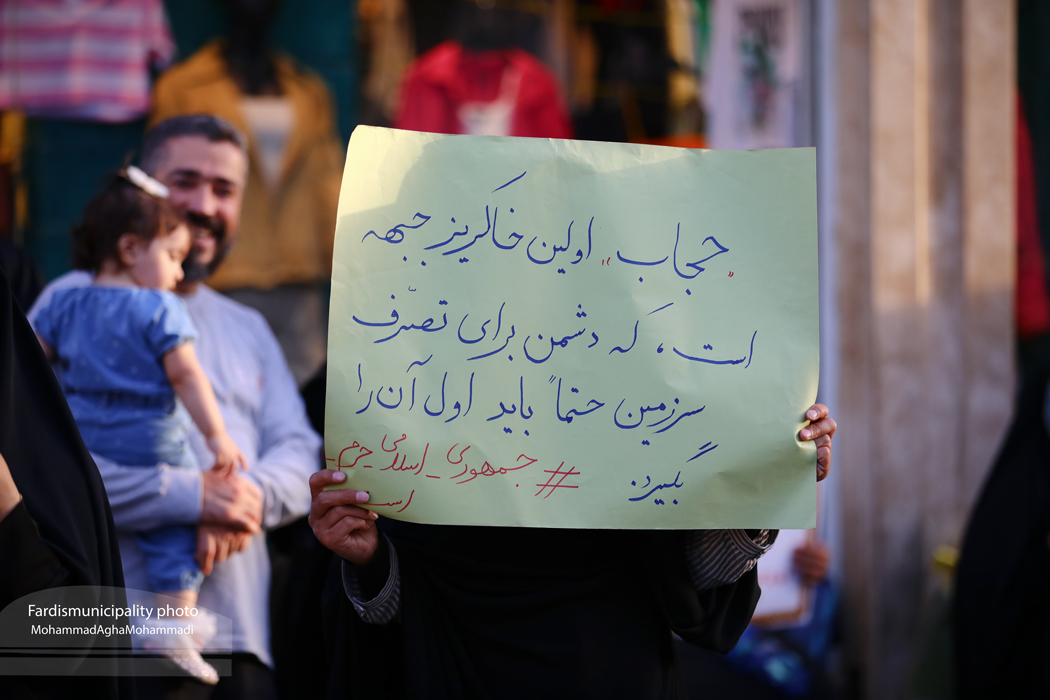 "حجاب" اولین خاکریز جبهه
است، که دشمن برای تصّرف
سرزمین حتماً باید اول آن را
بگیرد. #جمهوری_اسلامی_حرم_
است
Fardismunicipality photo
MohammadAghaMohammadi